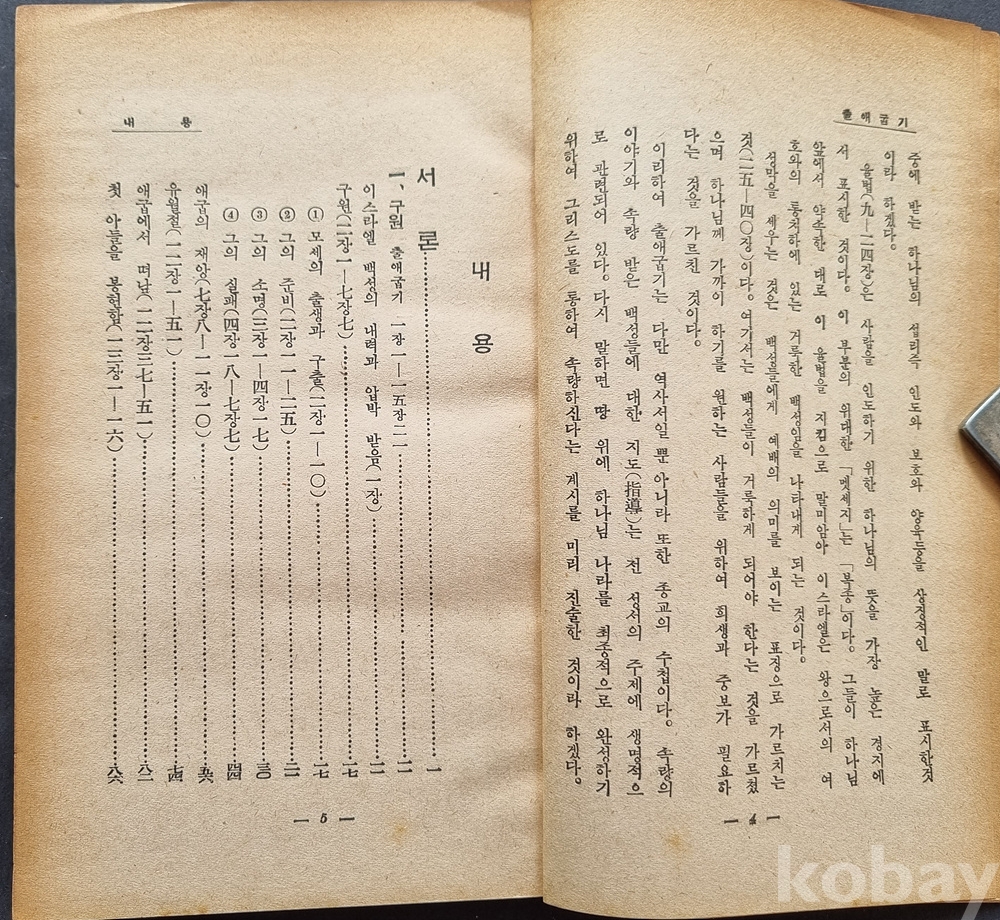 출애굽기
중에 받는 하나님의 섭리즉 인도와 보호와 양육등을 상징적인 말로 표시한것
이라 하겠다。
율법(九—二四장)은 사람을 인도하기 위한 하나님의 뜻을 가장 높은 경지에
서 표시한 것이다。 이 부분의 위대한 「멧세지」는 「복종」이다。 그들이 하나님
앞에서 약속한 대로 이 율법을 지킴으로 말미암아 이스라엘은 왕으로서의 여
호와의 통치하에 있는 거룩한 백성임을 나타내게 되는 것이다。
성막을 세우는 것은 백성들에게 예배의 의미를 보이는 표징으로 가르치는
것(二五—四〇장)이다。 여기서는 백성들이 거룩하게 되어야 한다는 것을 가르쳤
으며 하나님께 가까이 하기를 원하는 사람들을 위하여 희생과 중보가 필요하
다는 것을 가르친 것이다。
이리하여 출애굽기는 다만 역사서일 뿐 아니라 또한 종교의 수첩이다。 속량의
이야기와 속량 받은 백성들에 대한 지도(指導)는 전 성서의 주제에 생명적으
로 관련되어 있다。 다시 말하면 땅 위에 하나님 나라를 최종적으로 완성하기
위하여 그리스도를 통하여 속량하신다는 계시를 미리 진술한 것이라 하겠다。
— 4 —
내용
내용
서론……一
一、구원 출애굽기 一장一—一五장二一……二一
이스라엘 백성의 내력과 압박 받음(一장)……二一
구원(二장一—七장七)……一七
① 모세의 출생과 구출(二장一—一〇)……一七
② 그의 준비(二장一一—二五)……二一
③ 그의 소명(三장一—四장一七)……三〇
④ 그의 실패(四장一八—七장七)……四四
애굽의 재앙(七장八—一一장一〇)……五六
유월절(一二장一—五一)……七四
애굽에서 떠남(一二장三七—五一)……八二
첫 아들을 봉헌함(一三장一—一六)……八六
— 5 —
kobay